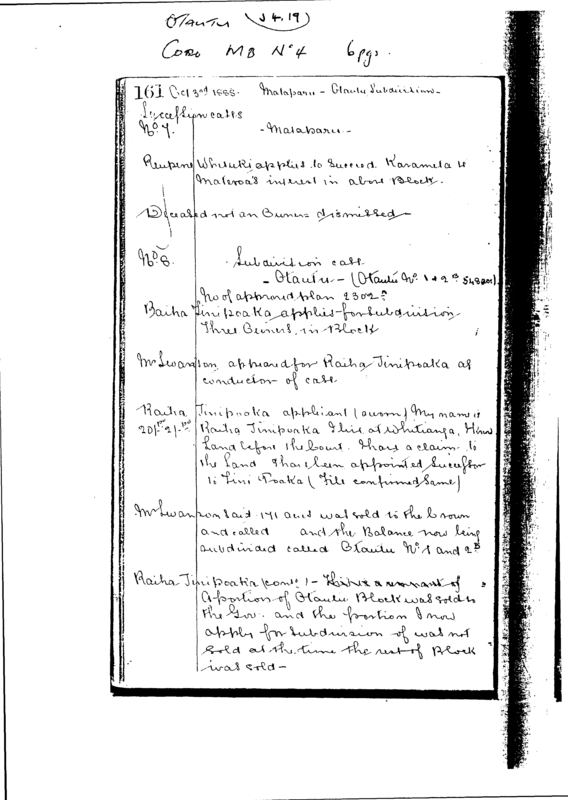 OTAUTU (J4.19)
CORO MB No 4 6 pgs.
161 Oct 3rd 1888. - Mataparu - Otautu Subdivision -
Succession cases
No. 7. - Mataparu -
Reupene Whituki applies to Succeed Karamela te
interest in above Block.
Deceased not an Owner dismissed -
No. 8. Subdivision case
- Otautu - (Otautu No. 1 & 2
No of approved plan 2302
Raiha Tinipoaka applies for subdivision
Three Owners in Block
Mr Swanson appeared for Raiha Tinipoaka as
conductor of case
Raiha Tinipoaka applicant (sworn) My name is
Raiha Tinipoaka I live at Whitianga, I know
Land before the Court. I have a claim to
the Land I have been appointed Successor
to Tini Poaka (File confirmed same)
Mr Swanson said 171 acres was sold to the Crown
and called and the Balance now being
subdivided called Otautu No. 1 and 2
Raiha Tinipoaka cont: - This is a remnant of
A portion of Otautu Block was sold to
the Gov. and the portion I now
apply for Subdivision of was not
sold at the time the rest of Block
was sold -